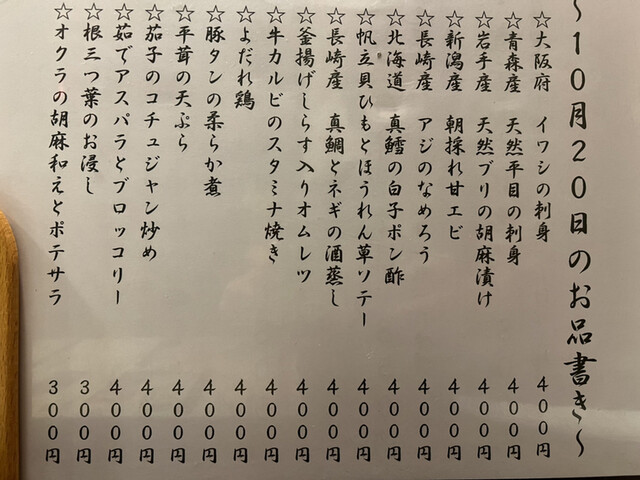 ～10月20日のお品書き～
☆大阪府 イワシの刺身 400円
☆青森産 天然平目の刺身 400円
☆岩手産 天然ブリの胡麻漬け 400円
☆新潟産 朝採れ甘エビ 400円
☆長崎産 アジのなめろう 400円
☆北海道 真鱈の白子ポン酢 400円
☆帆立貝ひもとほうれん草ソテー 400円
☆長崎産 真鯛とネギの酒蒸し 400円
☆釜揚げしらす入りオムレツ 400円
☆牛カルビのスタミナ焼き 400円
☆よだれ鶏 400円
☆豚タンの柔らか煮 400円
☆平茸の天ぷら 400円
☆茄子のコチュジャン炒め 400円
☆茹でアスパラとブロッコリー 400円
☆根三つ葉のお浸し 300円
☆オクラの胡麻和えとポテサラ 300円